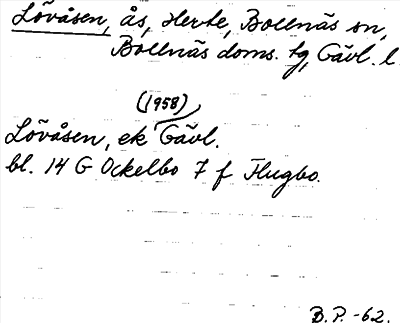 Lövåsen, ås, Herte, Bollnäs sn,
Bollnäs doms. tg, Gävl. l.
(1958)
Lövåsen, ek Gävl.
bl. 14 G Ockelbo 7 f Flugbo.
B.P. -62.